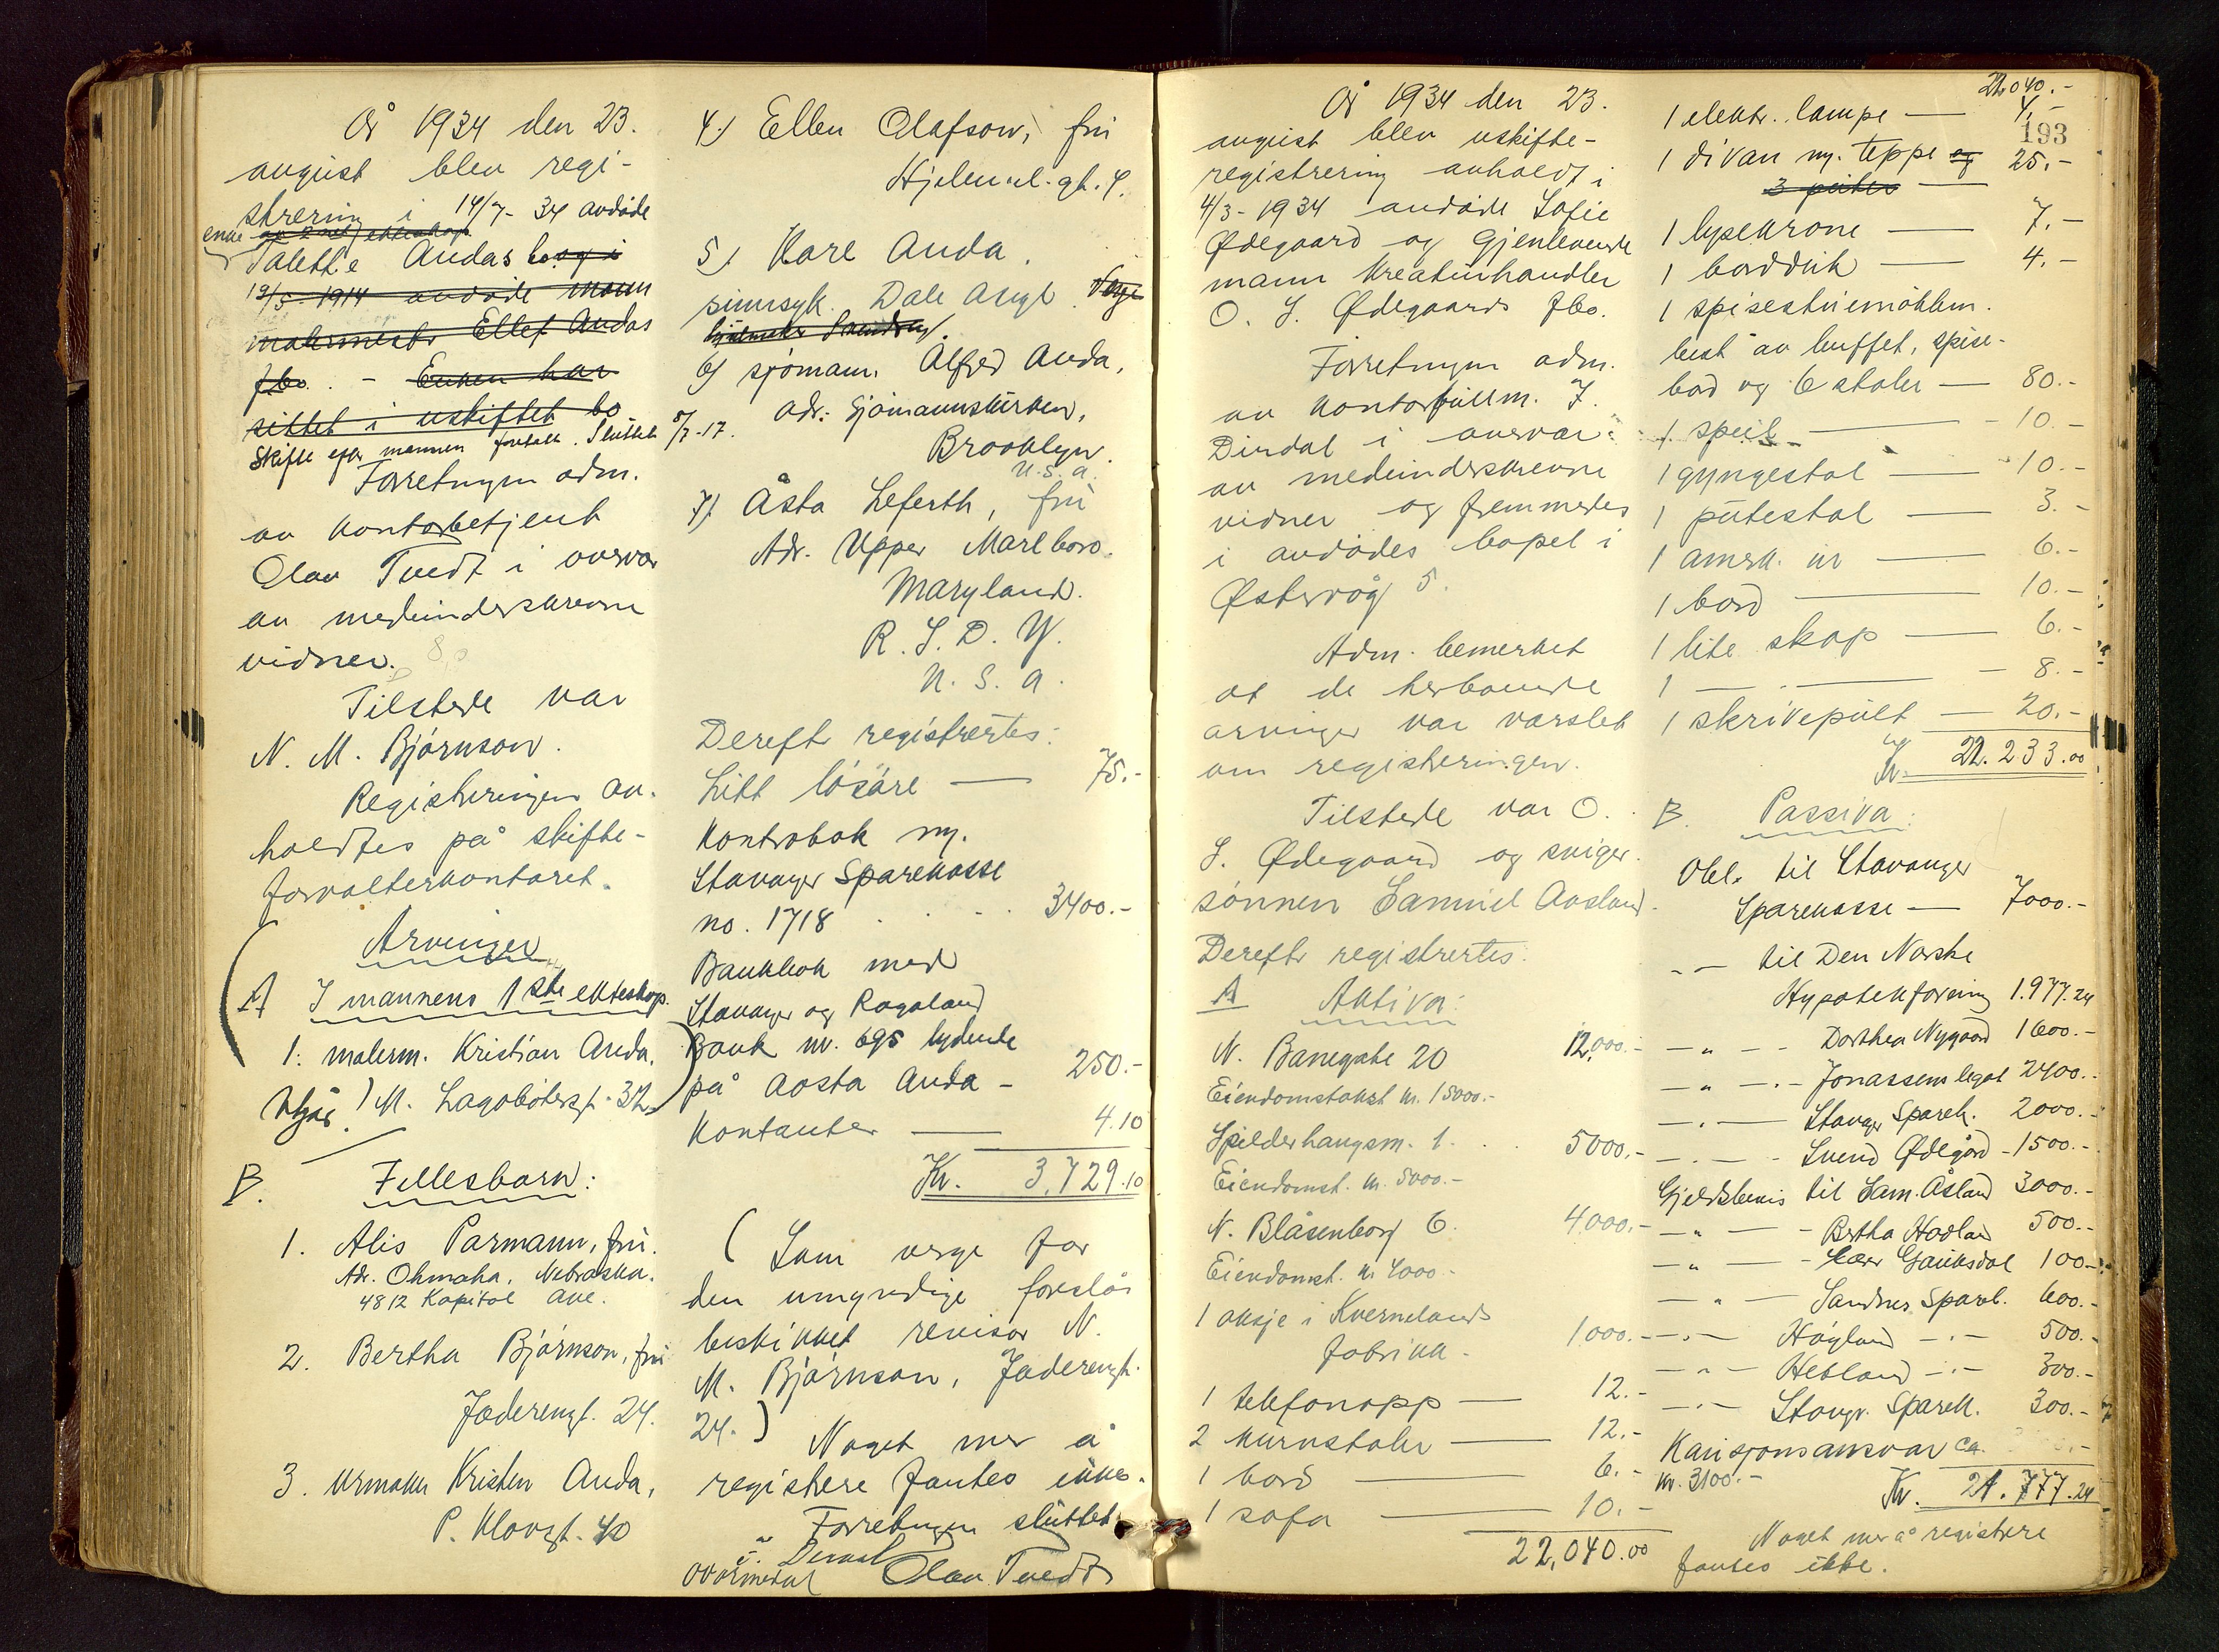 År 1934 den 23.
august blev regi-
strering i 14/7-34 avdøde
enke av 2net ekteskap
Talette Andas bo og i
12/5-1914 avdøde mann
malermester Ellef Andas
fbo. - Enken har
sittet i uskiftet bo
Skifte efter mannen foretatt. Sluttet 5/7-17.
Forretnngen adm.
av kontorbetjent
Olav Tvedt i overvær
av medundersskrevne
vidner.
Tilstede var
N. M. Bjørnson.
Registreringen av-
holdtes på skifte-
forvalterkontoret.
Arvinger
A I mannens 1ste ekteskap.
1. malerm. Kristian Anda.
Utgår! M. Lagabøtersgt. 32.
B. Fellesbarn:
1. Alis Parmann, fru.
Adr. Ohmaha, Nebraska.
4812 Kapitol Ave.
2. Bertha Bjørnson, fru
Jæderengt. 24.
3. Urmaker Kristen Anda,
P. Klovgt. 40
4.) Ellen Olafson, fru
Hjelmel. gt. 4.
5.) Kare Anda.
sinnsyk. Dale Asyl. Verge
6) sjømann. Alfred Anda,
adr: Sjømannskirken,
Brooklyn.
U.S.A.
7) Åsta Leferth, fru
Adr. Upper Marlboro.
Maryland.
R. F. D. Y.
U. S. A.
Derefter registrertes:
Litt løsøre — 75.-
Kontrabok m.
Stavanger Sparekasse
no. 1718 . . . . 3400.-
Bankbok med
Stavanger og Rogaland
Bank nr. 695 lydende
på Aasta Anda - 250.-
Kontanter — 4.10
Kr. 3.729.10
( Som verge for
den umyndige foreslås
beskikket revisor N.
M. Bjørnson, Jæderengt.
24. )
Noget mer å
registrere fantes ikke.
Forretningen sluttet.
Olav Tvedt
22.040.-
193
År 1934 den 23.
august blev uskifte-
registrering avholdt i
4/3-1934 avdøde Sofie
Ødegaard og gjenlevende
mann kreaturhandler
O. S. Ødegaards fbo.
Forretningen adm.
av kontorfullm. F.
Dirdal i overvær
av medunderskrevne
vidner og fremmedes
i avdødes bopel i
Østervåg 5.
Adm. bemerket
at de herboende
arvinger var varslet
om registreringen.
Tilstede var O.
S. Ødegaard og sviger-
sønnen Samuel Aasland.
Derefter registrertes:
A Aktiva:
N. Banegate 20 12,000.-
Eiendomstakst kr. 15000.-
Spilderhaugsm. 1. . . 5000.-
Eiendomst. kr. 5000.-
N. Blåsenborg 6. 4000.-
Eiendomst. kr. 4000.-
1 aksje i Kvernelands
fabrikk - 1000.-
1 telefonapp — 12.-
2 kurvstoler — 12.-
1 bord — 6.-
1 sofa — 10.-
22,040.00
1 elektr. lampe — 4.-
1 divan m. teppe og 25.-
3 puter —
1 lysekrone — 7.-
1 bordduk — 4.-
1 spisestuemøblem.
best av buffet, spise-
bord og 6 stoler — 80.-
1 speil — 10.-
1 gyngestol — 10.-
1 putestol — 3.-
1 amrk. ur — 6.-
1 bord — 10.-
1 lite skap — 6.-
1 — . — - 8.-
1 skrivepult — 20.-
Kr. 22.233.00
B. Passiva:
Obl. til Stavanger
Sparekasse — 7000.-
-"- til Den Norske
Hypotekforening 1.977.24
-"- - Dorthea Nygaard 1600.-
-"- - Jonassens legat 2400.-
-"- Stavger Sparek. 2000.-
-"- - Svend Ødegård - 1500.-
Gjeldsbevis til Sam. Åsland 3000.-
-"- - Bertha Hodland 500.-
-"- - Lars Gauksdal 100.-
-"- Sandnes Spareb. 600.-
-"- Høyland -"- 500.-
-"- Hetland -"- 300.-
-"- Stavgr. Sparek. 300.-
Kausjonsansvar ca.
kr. 3100.-
Kr. 21.777.24
Noget mer å registrere
fantes ikke.